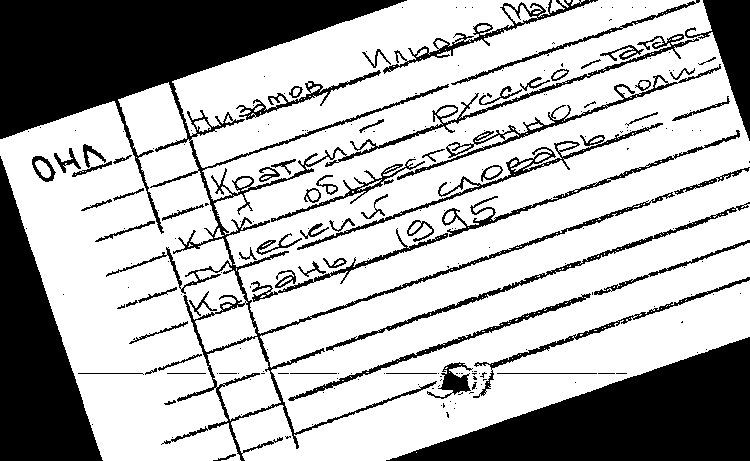 Низамов, Ильдар
ОНЛ
Краткий русско-татарс
кий общественно-поли-
тический словарь.-
Казань, 1995